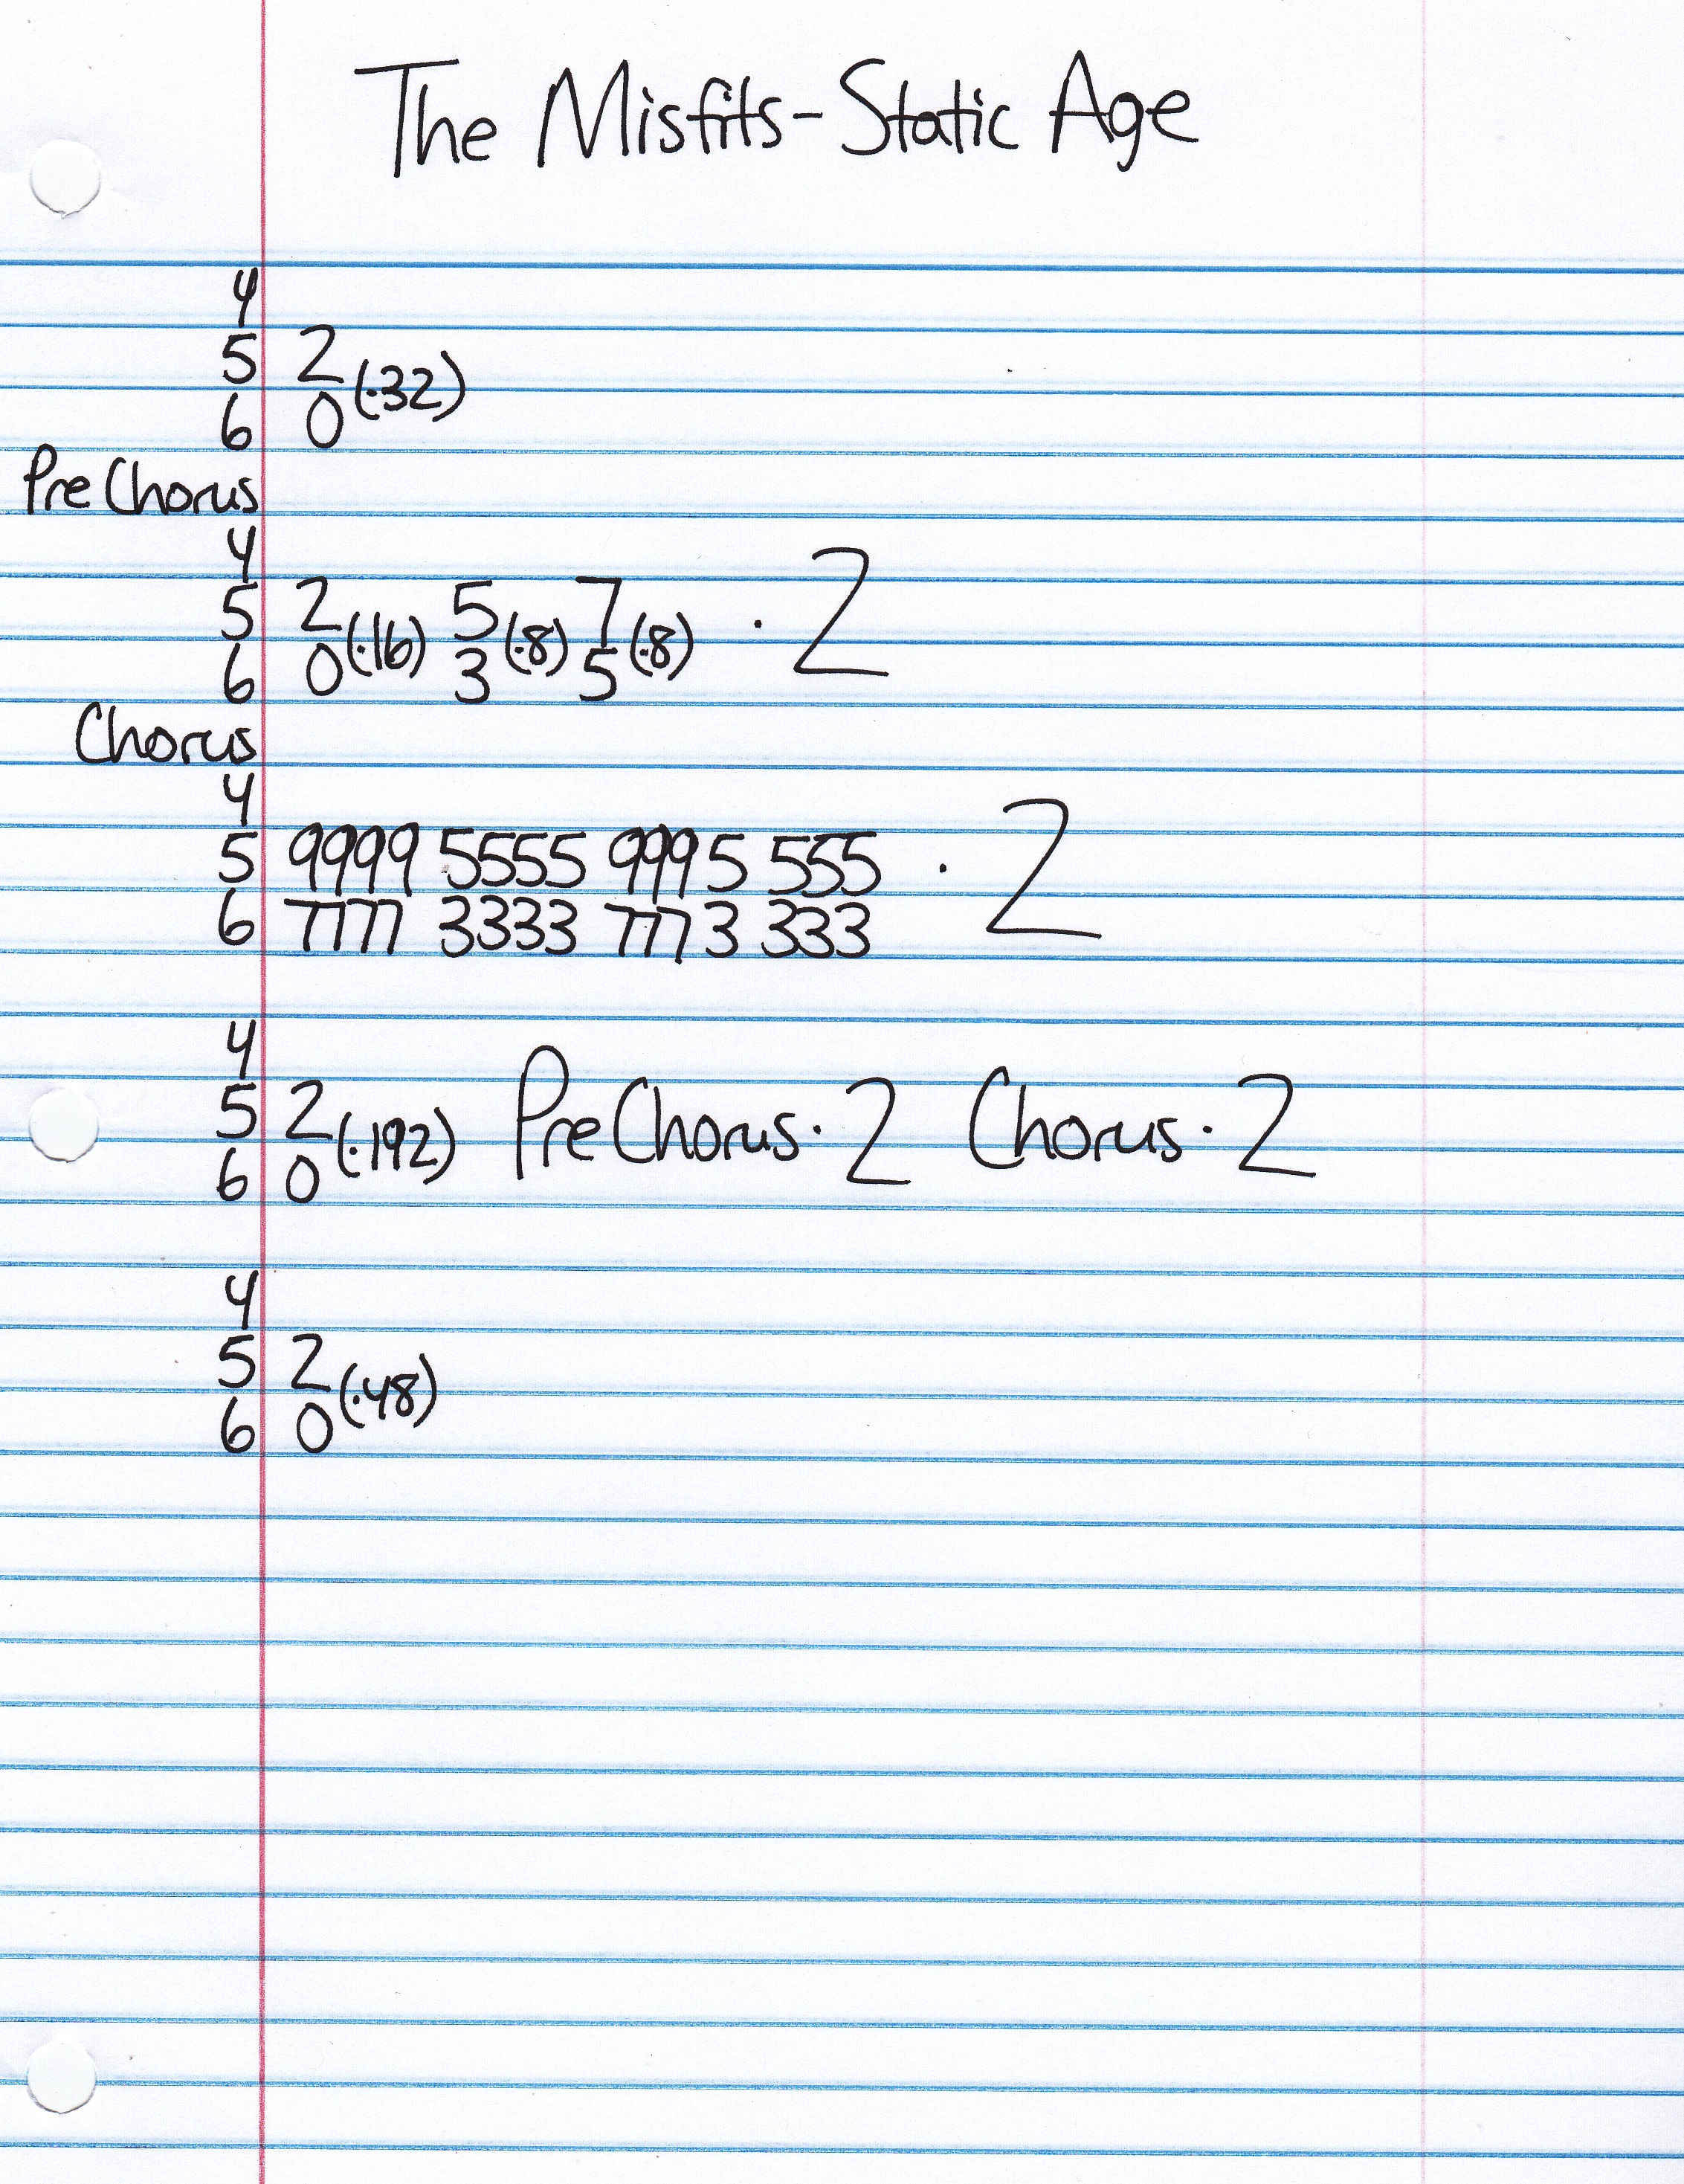 The Misfits - Static Age
4
5 2
6 0 (·32)
Pre Chorus
4
5 2 5 7
6 0 (·16) 3 (·8) 5 (·8) · 2
Chorus
4
5 9999 5555 9995 555
6 7777 3333 7773 333 · 2
4
5 2
6 0 (·192) Pre Chorus · 2 Chorus · 2
4
5 2
6 0 (·48)